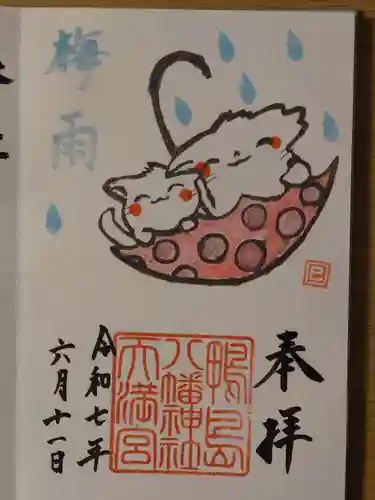 梅雨
奉拝
鴨島
八幡神社
天満宮
令和七年
六月十一日